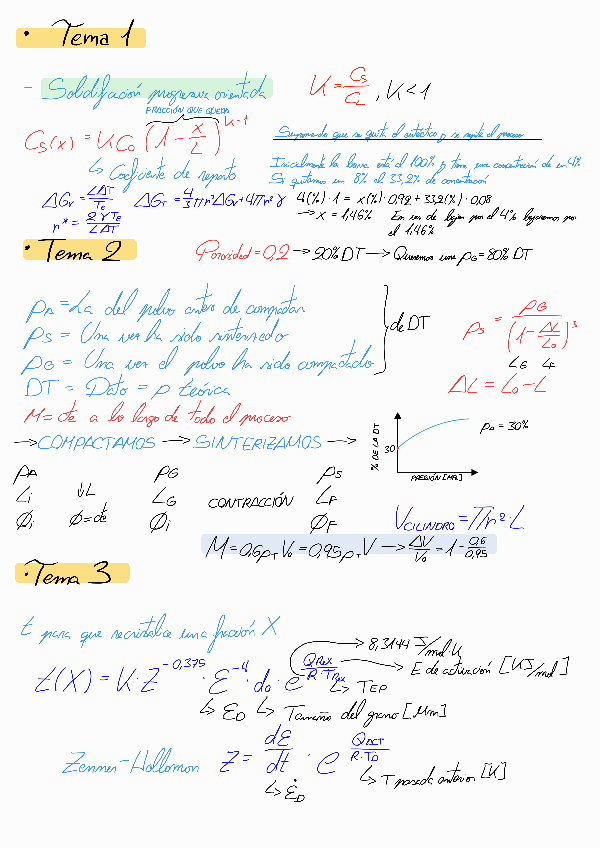 • Tema 1
- Solidificación progresiva orientada
K = Cs/CL , K<1
FRACCIÓN QUE QUEDA
Cs(x) = K Co (1 - x/L)^K-1
↳ Coeficiente de reparto
Suponiendo que se quite el eutéctico y se repite el proceso
Inicialmente la barra está al 100% y tiene una concentración de un 4%
Si quitamos un 8% al 33,2% de concentración
ΔGv = LΔT/Te ΔGT = 4/3 πr³ΔGv + 4πr²γ
4(%)·1 = x(%)·0,92 + 33,2(%)·0,08
r* = 2γTe/LΔT
→ x = 1,46% En vez de bajar por el 4% bajaremos por
el 1,46%
• Tema 2
Porosidad = 0,2 → 20% DT → Queremos una ρG = 80% DT
ρA = La del polvo antes de compactar
ρS = Una vez ha sido sinterizado
ρG = Una vez el polvo ha sido compactado
de DT
ρS = ρG/(1 - ΔL/Lo)³
LG LF
DT = Dato = ρ teórica
ΔL = Lo - L
M = cte a lo largo de todo el proceso
→ COMPACTAMOS → SINTERIZAMOS →
% DE LA DT
30
PRESIÓN [MPa]
ρA = 30%
ρA ρG ρS
Li ↓L LG CONTRACCIÓN LF
Øi Ø=cte Øi ØF
VCILINDRO = πr²L
M = 0,6ρT V0 = 0,95ρT V → ΔV/V0 = 1 - 0,6/0,95
• Tema 3
t para que recristalice una fracción X
t(X) = K·Z^-0,375 · ε^-4 · do · e^QRex/R·TRex
→ 8,3144 J/mol·K
→ E de activación [KJ/mol]
↳ TEP
↳ εD ↳ Tamaño del grano [μm]
Zenner-Hollomon Z = dε/dt · e^QACT/R·TD
↳ ε̇D
↳ T pasada anterior [K]